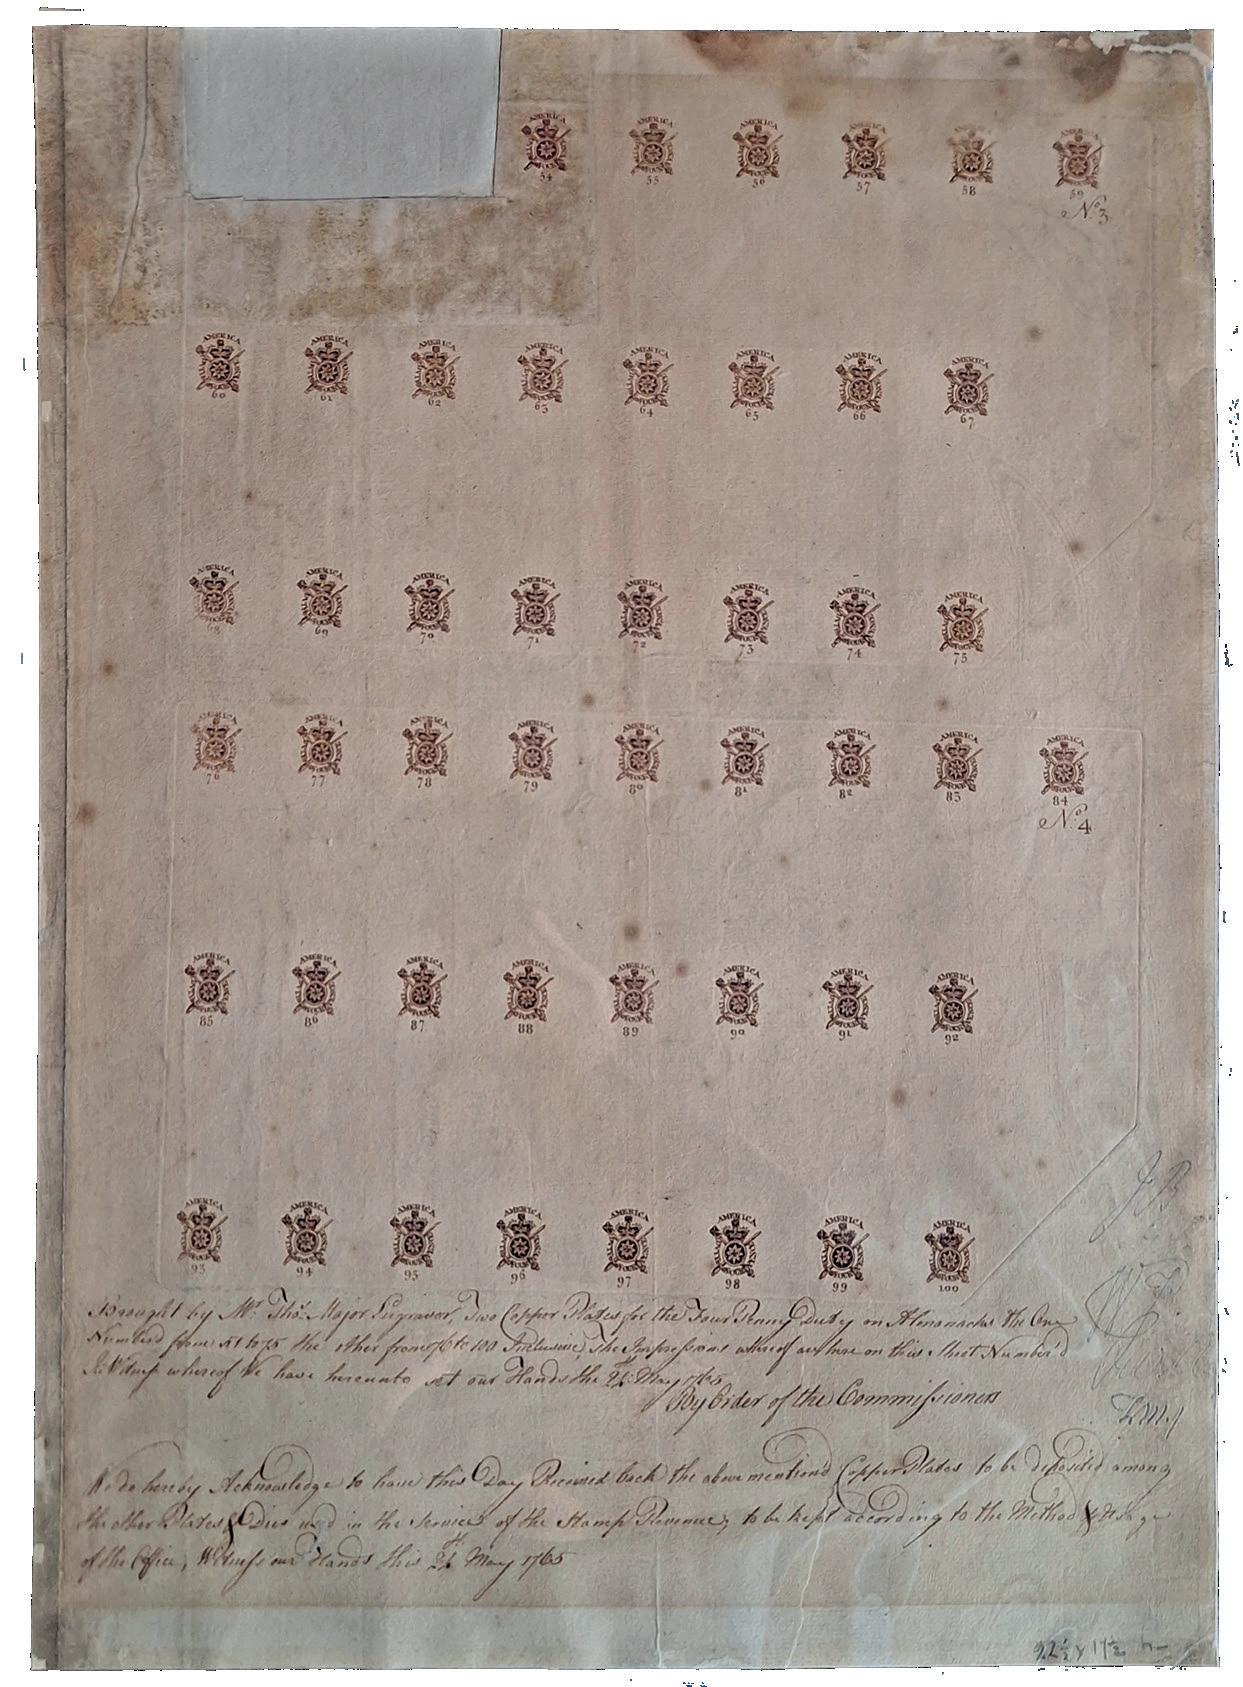 AMERICA AMERICA AMERICA AMERICA AMERICA AMERICA
54 55 56 57 58 59
No. 3
AMERICA AMERICA AMERICA AMERICA AMERICA AMERICA AMERICA AMERICA
60 61 62 63 64 65 66 67
AMERICA AMERICA AMERICA AMERICA AMERICA AMERICA AMERICA AMERICA
68 69 70 71 72 73 74 75
AMERICA AMERICA AMERICA AMERICA AMERICA AMERICA AMERICA AMERICA AMERICA
76 77 78 79 80 81 82 83 84
No. 4
AMERICA AMERICA AMERICA AMERICA AMERICA AMERICA AMERICA AMERICA
85 86 87 88 89 90 91 92
AMERICA AMERICA AMERICA AMERICA AMERICA AMERICA AMERICA AMERICA
93 94 95 96 97 98 99 100
J B
Brought by Mr. Thos. Major Engraver, Two Copper Plates for the Four Penny Duty on Almanacks the One
Number'd from 51 to 75 the other from 76 to 100 Inclusive, The Impressions whereof are here on this Sheet Number'd
In Witness whereof We have hereunto set our Hands the May 1765
By Order of the Commissioners
We do hereby Acknowledge to have this Day Received back the above mention'd Copper Plates to be deposited among
the other Plates & Dies used in the Service of the Stamp Revenue, to be kept according to the Method & Usage
of the Office, Witness our Hands this May 1765